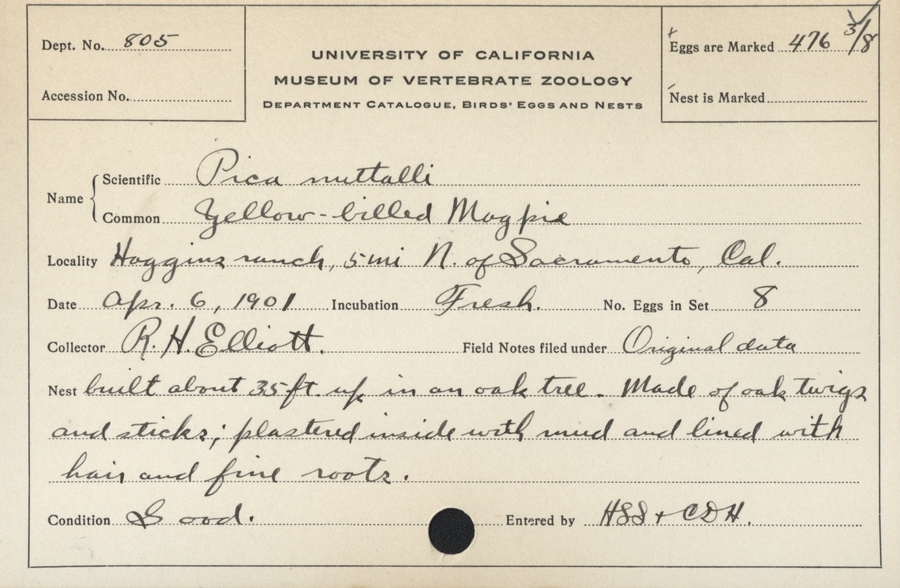 Dept. No. 805
UNIVERSITY OF CALIFORNIA
MUSEUM OF VERTEBRATE ZOOLOGY
DEPARTMENT CATALOGUE, BIRDS' EGGS AND NESTS
Eggs are Marked 476 3/8
Accession No.
Nest is Marked
Name
Scientific Pica nuttalli
Common Yellow-billed Magpie
Locality Haggins ranch, 5 mi N. of Sacramento, Cal.
Date Apr. 6, 1901 Incubation Fresh. No. Eggs in Set 8
Collector R. H. Elliott. Field Notes filed under Original data
Nest built about 35 ft. up in an oak tree. Made of oak twigs
and sticks; plastered inside with mud and lined with
hair and fine roots.
Condition Good. Entered by HSS + CDH.